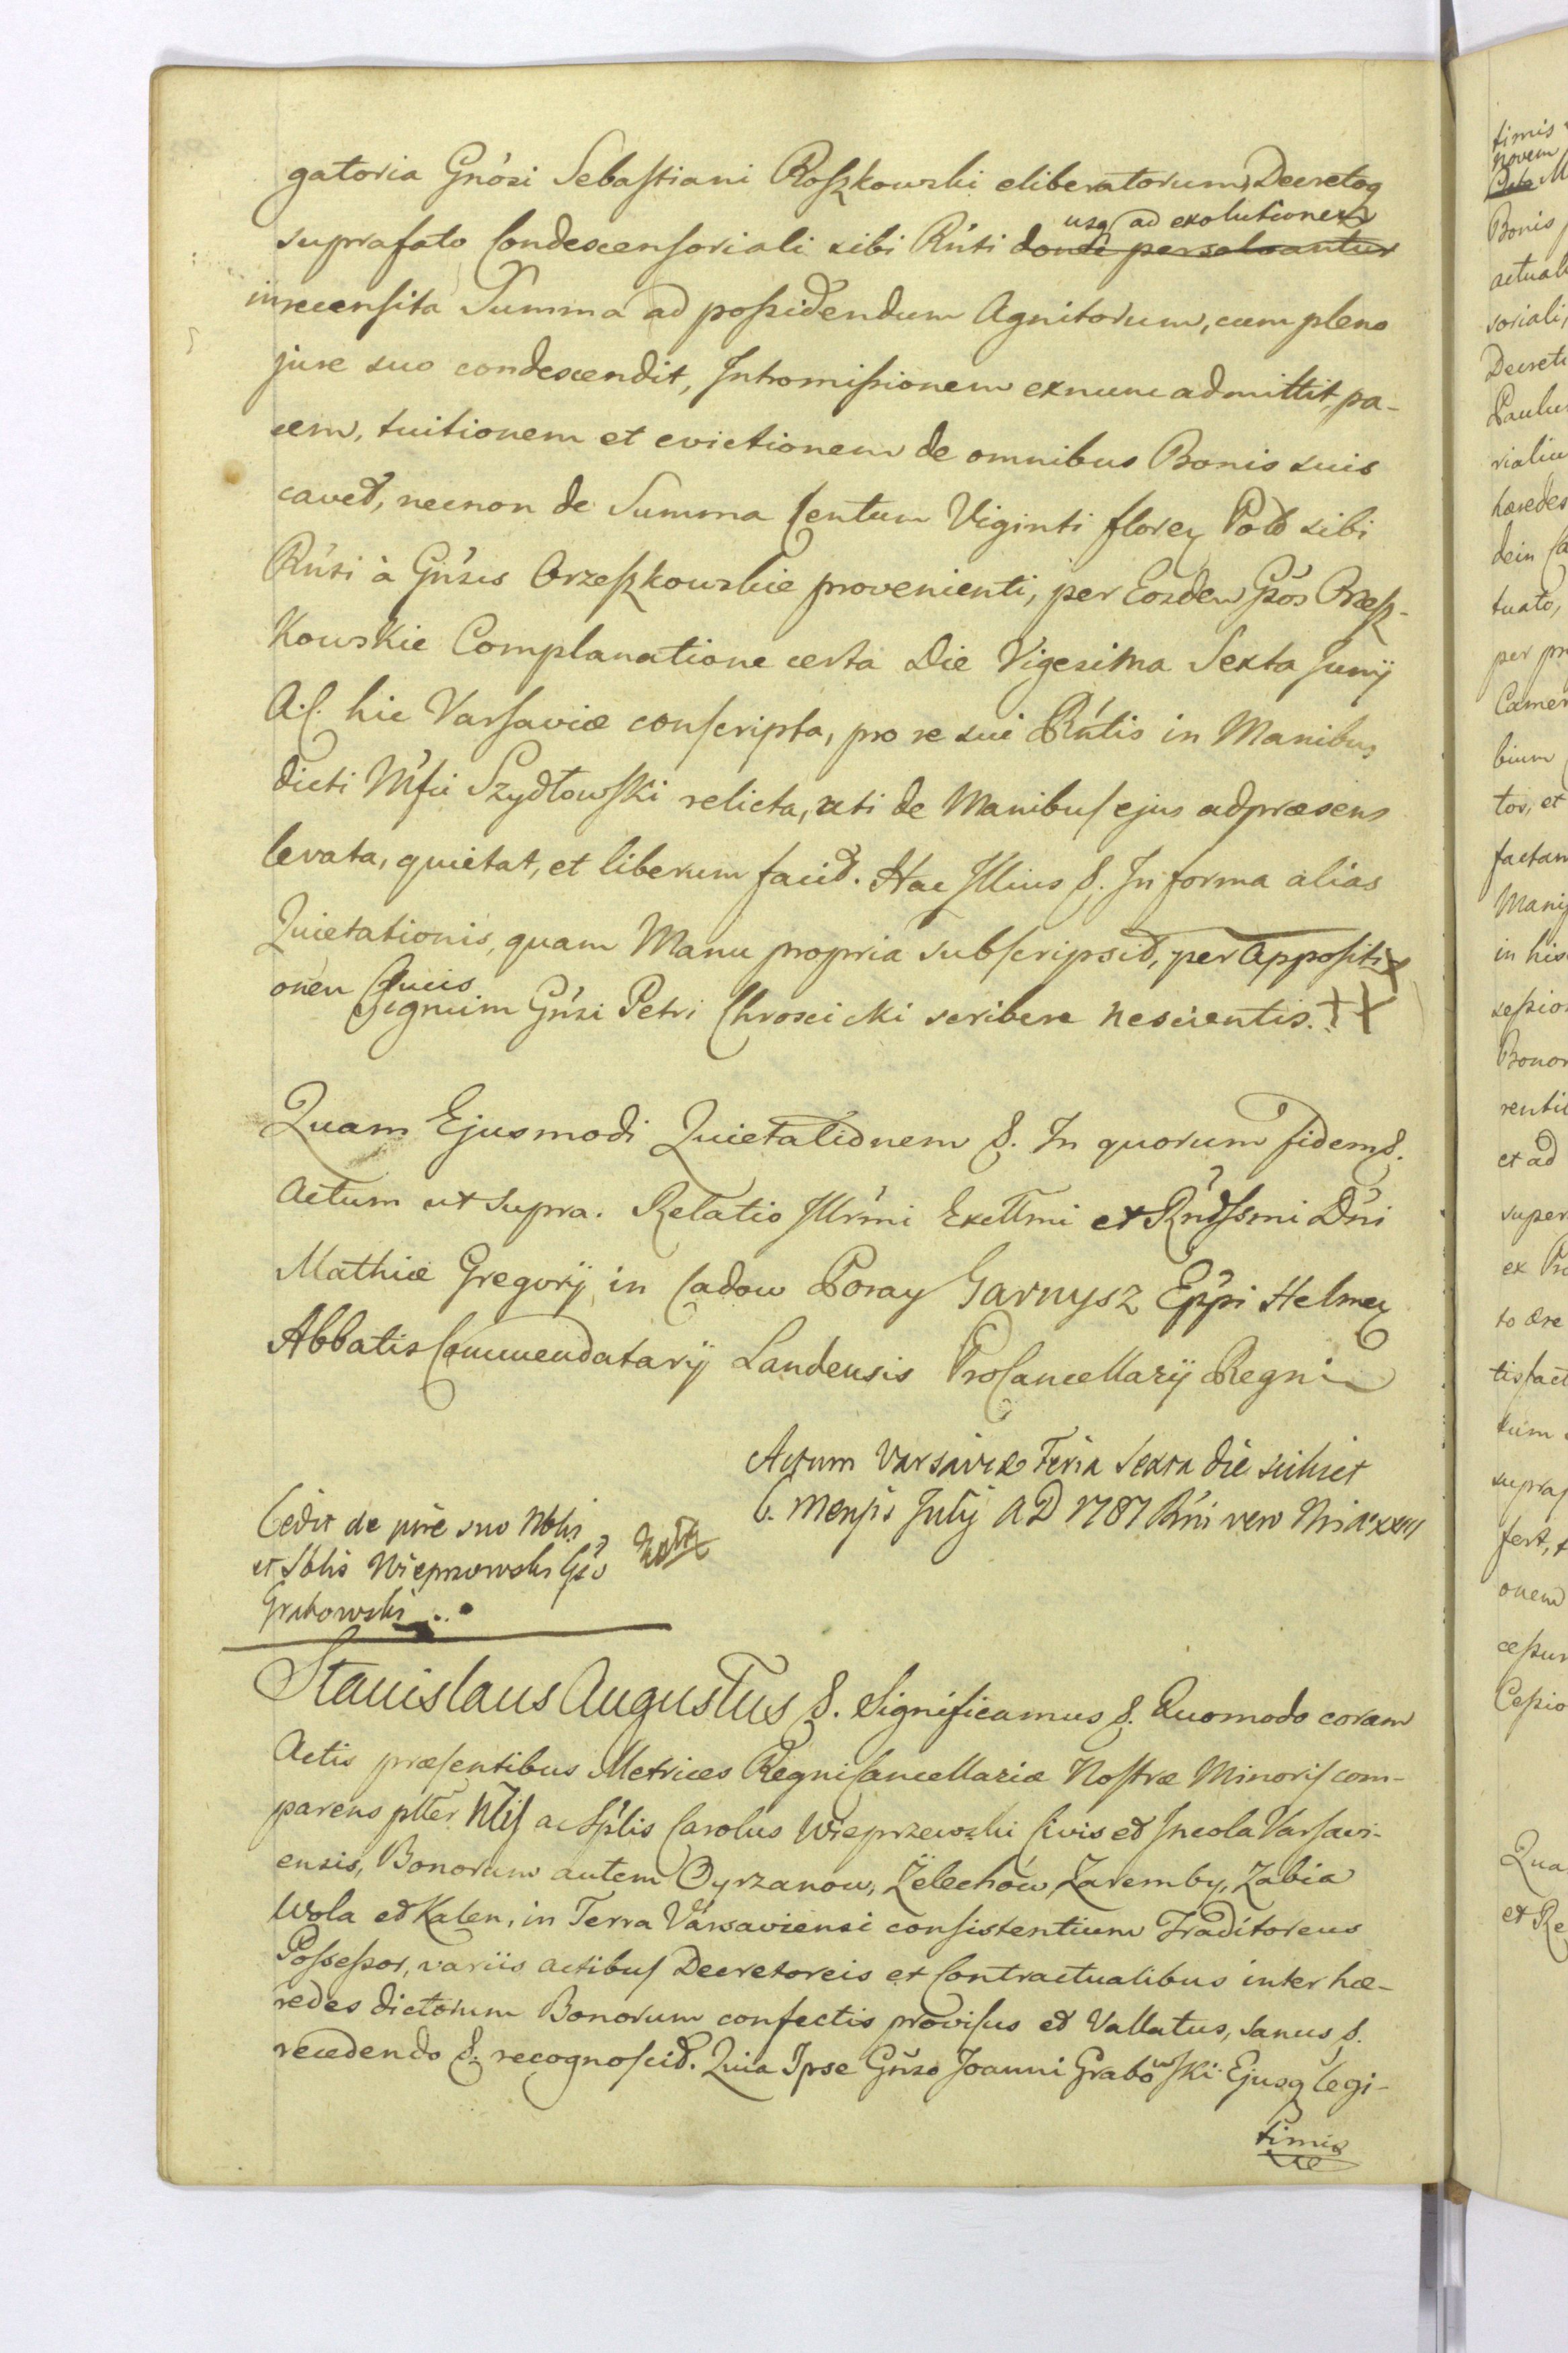 gatoria Gnósi Sebastiani Roszkowski eliberatorum, Decretoq
suprafato Condescensoriali sibi Rńti donec persolvantur usq ad exolutionem
inrecensita Summa ad possidendum Agnitorum, cum pleno
jure suo condescendit, Intromissionem exnunc admittit, pa-
cem, tuitionem et evictionem de omnibus Bonis suis
cavet, necnon de Summa Centum Viginti floren Pol sibi
Rńti à Gńsis Orzeszkowskie provenienti, per Eosdem Gsós Orzesz-
kowskie Complanatione certa Die Vigesima Sexta Junij
A. C. hic Varsaviæ conscripta, pro re sui Rńtis in Manibus
dicti Mfci Szydłowski relicta, uti de Manibus ejus adpræsens
levata, quietat, et liberum facit. Hac Illius &. In forma alias
Quietationis, quam Manu propria subscripsit, per Appositi
onem Crucis
Signum Gńsi Petri Chroscicki scribere nescientis. ++
Quam Ejusmodi Quietationem &. In quorum fidem &.
Actum ut supra. Relatio Illrmi Excllmi et Rńdssmi Dńi
Mathiæ Gregorij in Cadow Poray Garnysz Eppi Helmen
Abbatis Commendatarij Landensis ProCancellarij Regni
Actum Varsaviæ Feria Sexta die scilicet
6. Mensis Julij A D 1787 Rńi vero Nri A XXIII
Cedit de jure suo Nblis
et Sblis Wieprzewski Gso
Grabowski
Stanislaus Augustus &. Significamus &. Quomodo coram
Actis præsentibus Metrices Regni Cancellariæ Nostræ Minoris com-
parens pltter Nlis ac Splis Carolus Wieprzewski Civis et Incola Varsavi-
ensis, Bonorum autem Oyrzanow, Żelechów, Zaremby, Zabia
Wola et Kalen, in Terra Varsaviensi consistentium Traditoreus
Possessor, variis actibus Decretoreis et Contractualibus inter hæ-
redes dictorum Bonorum confectis provisus et Vallatus, sanus &.
recedendo &. recognoscit. Quia Ipse Gńso Joanni Grabowski Ejusq legi-
timis
timis
novem
Bonis
actuali
soriali,
Decreto
Paulu
rialiu
hæredes
dein Ca
tuato,
per pr
Camer
bium
tor, et
factam
Mani
in his
sessio
Bonor
renti
et ad
super
ex Pr
to ære
tisfact
tum
supraf
fert,
onem
cessur
Cessio
Qua
et Re